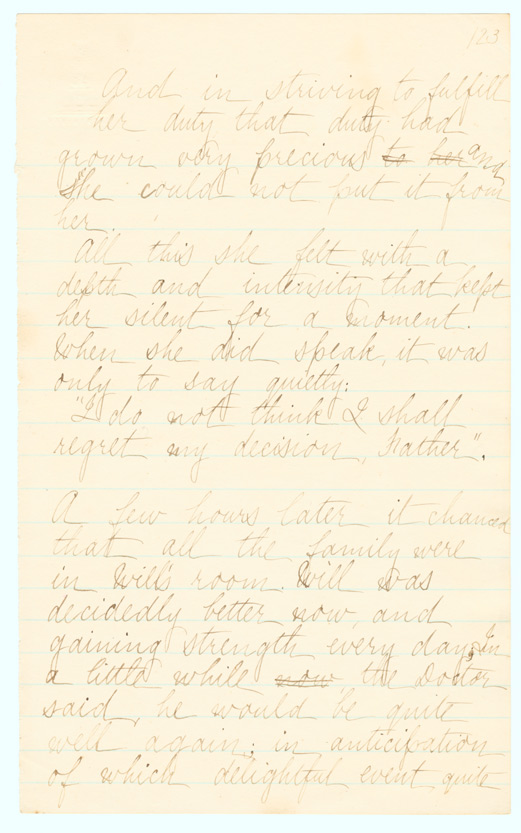 123
And in striving to fulfill
her duty that duty had
grown very precious to her and
She could not put it from
her.
All this she felt with a
depth and intensity that kept
her silent for a moment.
When she did speak, it was
only to say quietly:
"I do not think I shall
regret my decision, Father".
A few hours later it chanced
that all the family were
in Will's room. Will was
decidedly better now, and
gaining strength every day; In
a little while now the Doctor
said, he would be quite
well again: in anticipation
of which delightful event quite